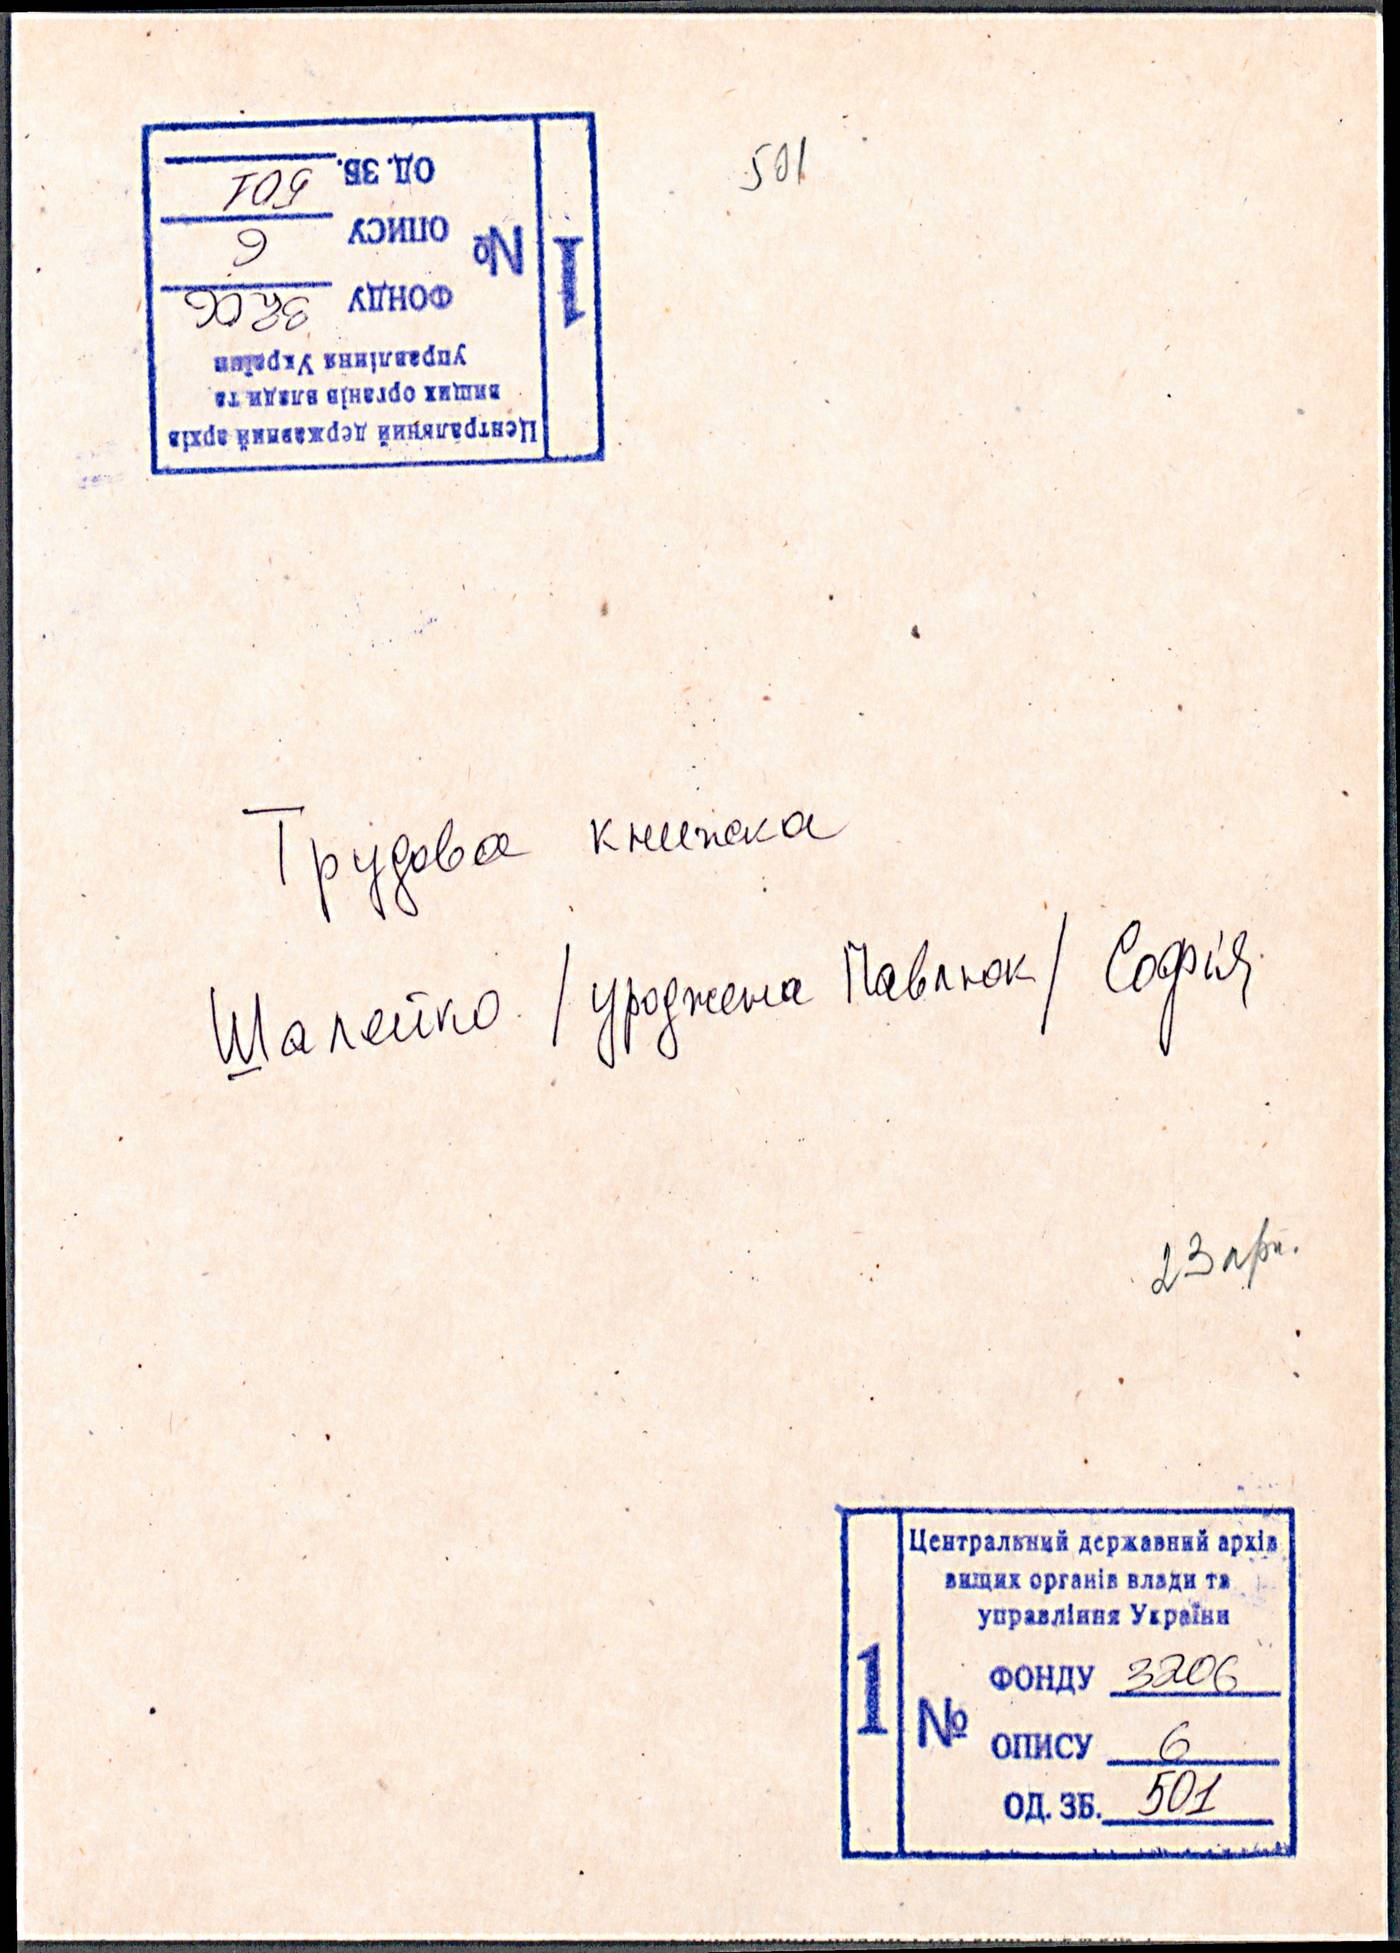 Центральний державний архів
вищих органів влади та
управління України
ФОНДУ 3206
№ ОПИСУ 6
ОД. ЗБ. 501
1
501
Трудова книжка
Шалейко /уроджена Павлюк/ Софія
23 арк.
Центральний державний архів
вищих органів влади та
управління України
ФОНДУ 3206
1 № ОПИСУ 6
ОД. ЗБ. 501